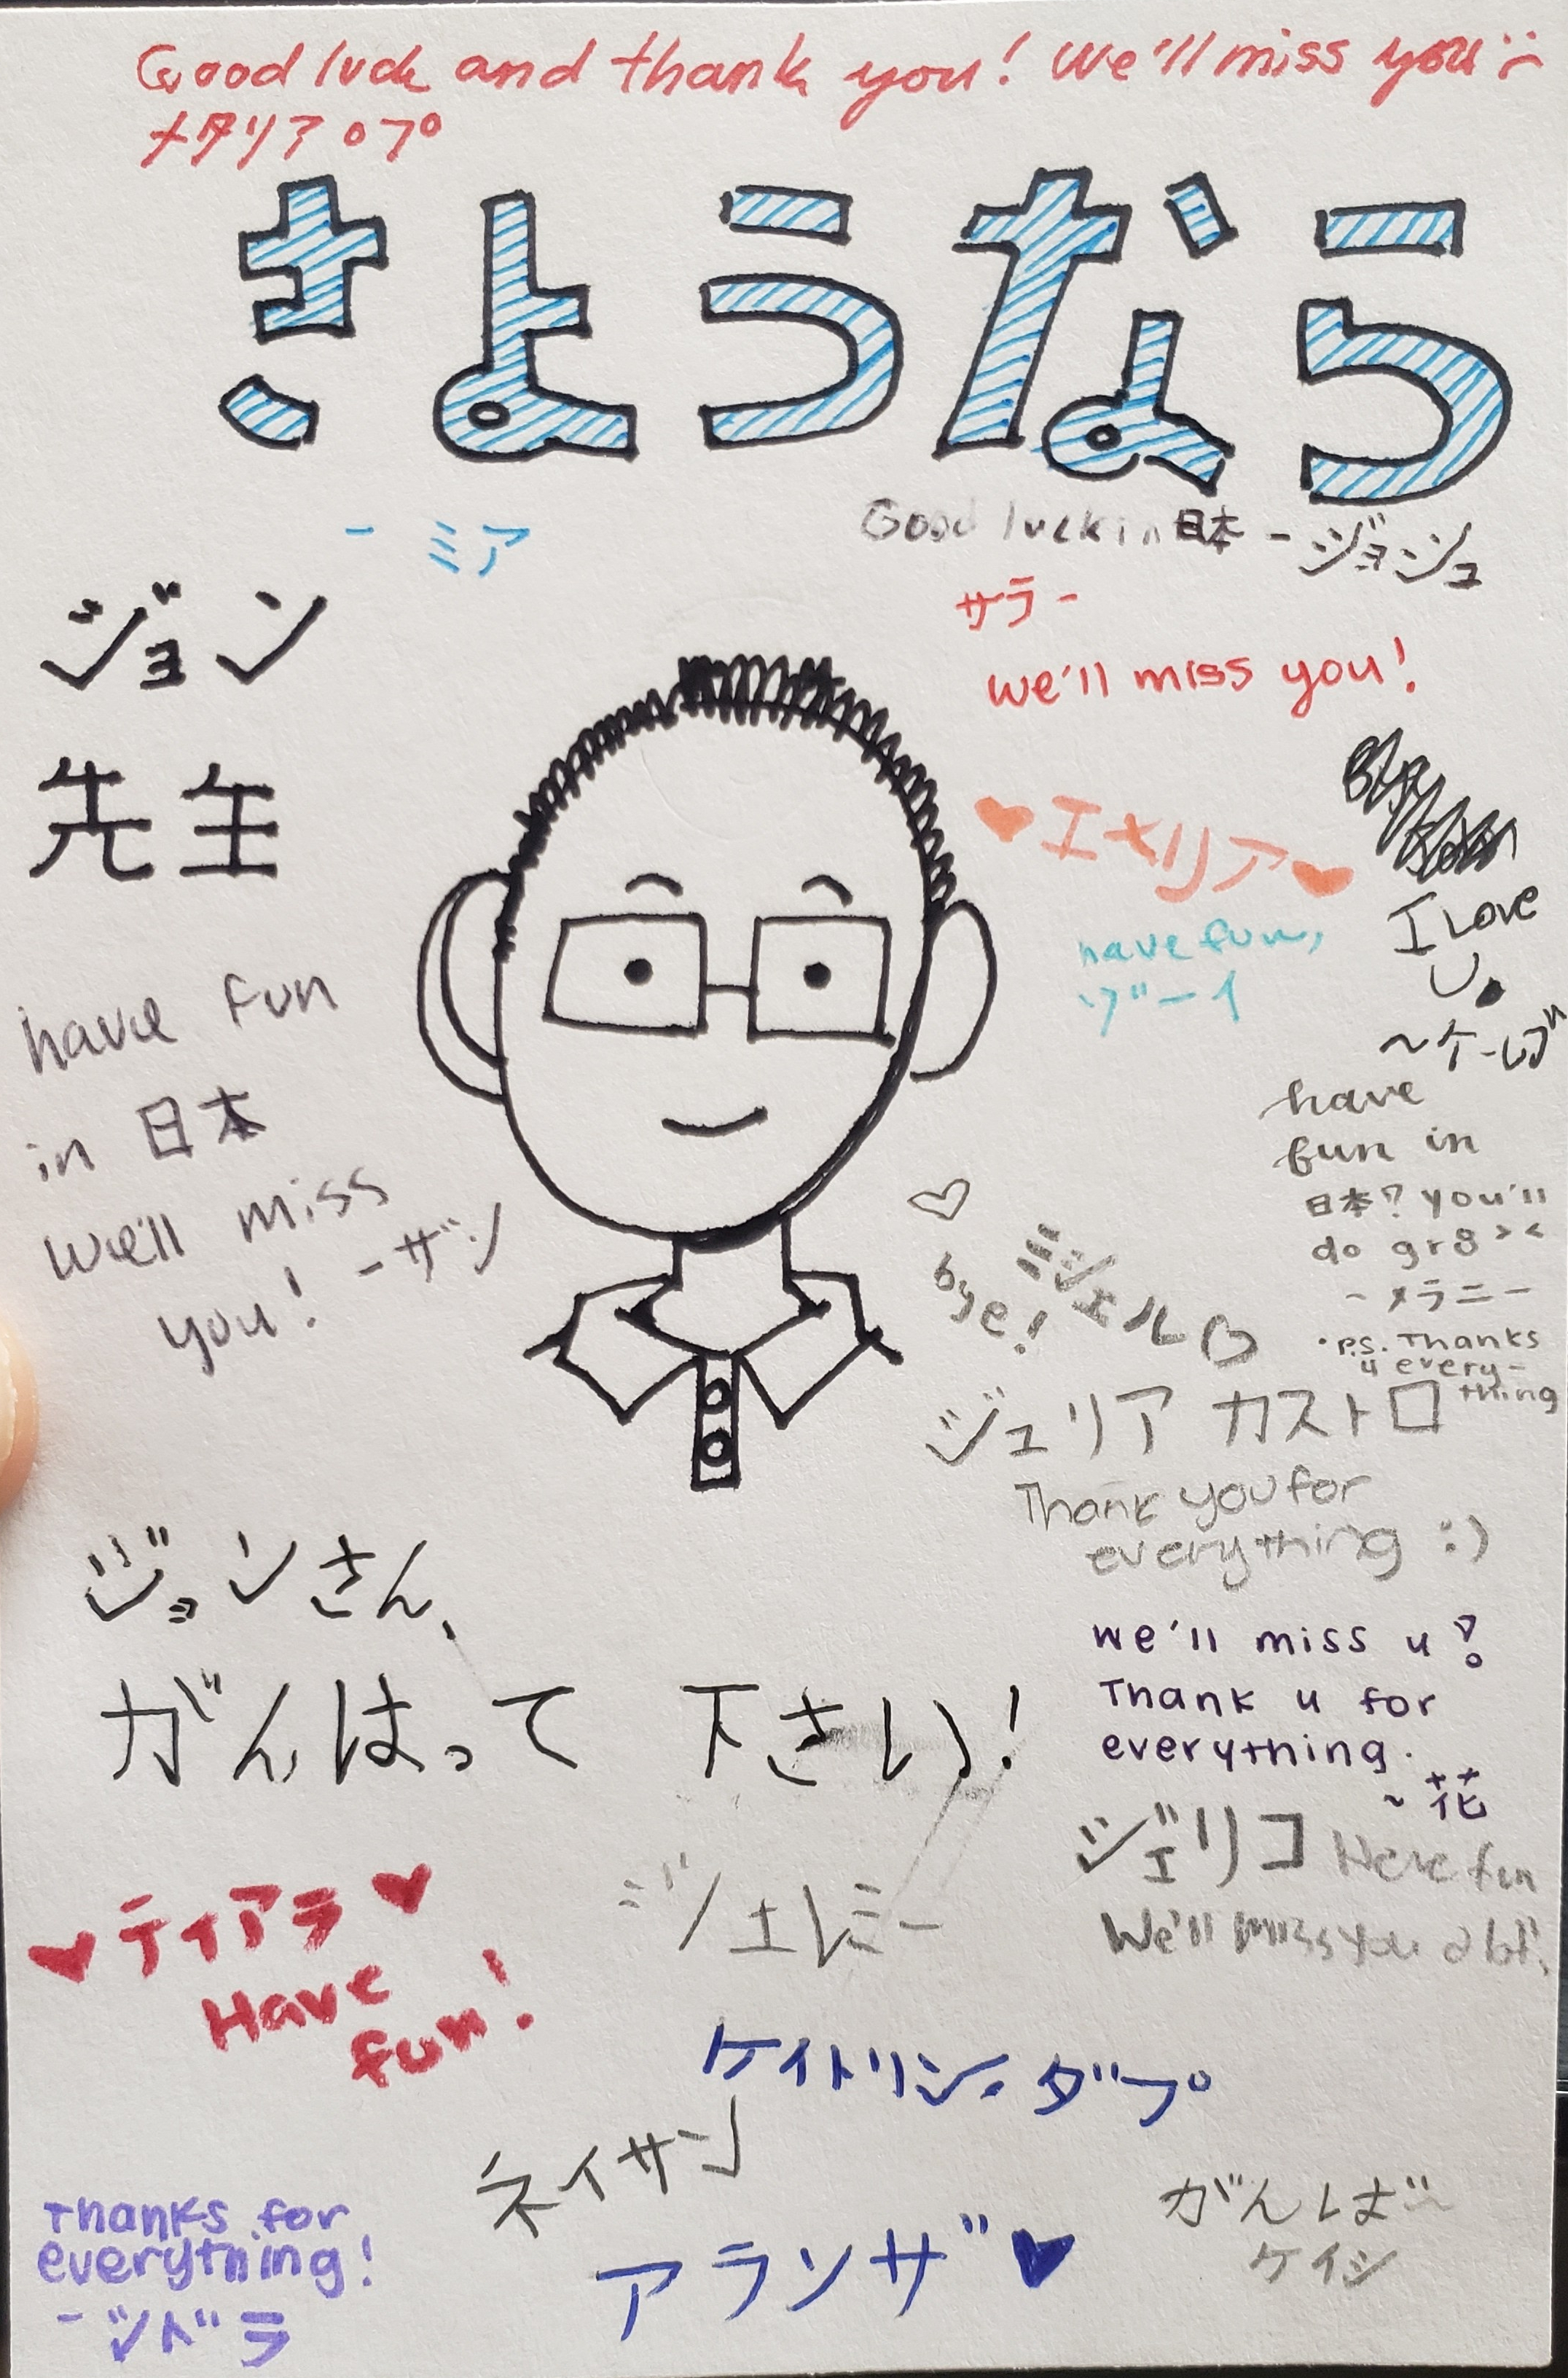 Good luck and thank you! We'll miss you :(
ナタリア ロプ
さようなら
- ミア
Good luck in 日本 - ジョシュ
サラ -
we'll miss you!
ジョン
先生
♥エメリア♥
have fun,
ゾーイ
I Love
U.
have fun
in 日本
we'll miss
you! -ザン
have
fun in
日本? you'll
do gr8 ><
- メラニー
♡
bye!
ミシェル♡
• P.S. Thanks
4 every-
thing
ジュリア カストロ
Thank you for
everything :)
ジョンさん、
がんはって 下さい!
we'll miss u!
Thank u for
everything.
~ 花
ジェリコ Have fun
We'll miss you
♥ティアラ♥
Have
fun!
ジェレミー
ケイトリン・ダプ
ネイサン
アランザ♥
がんば~
ケイシ
Thanks for
everything!